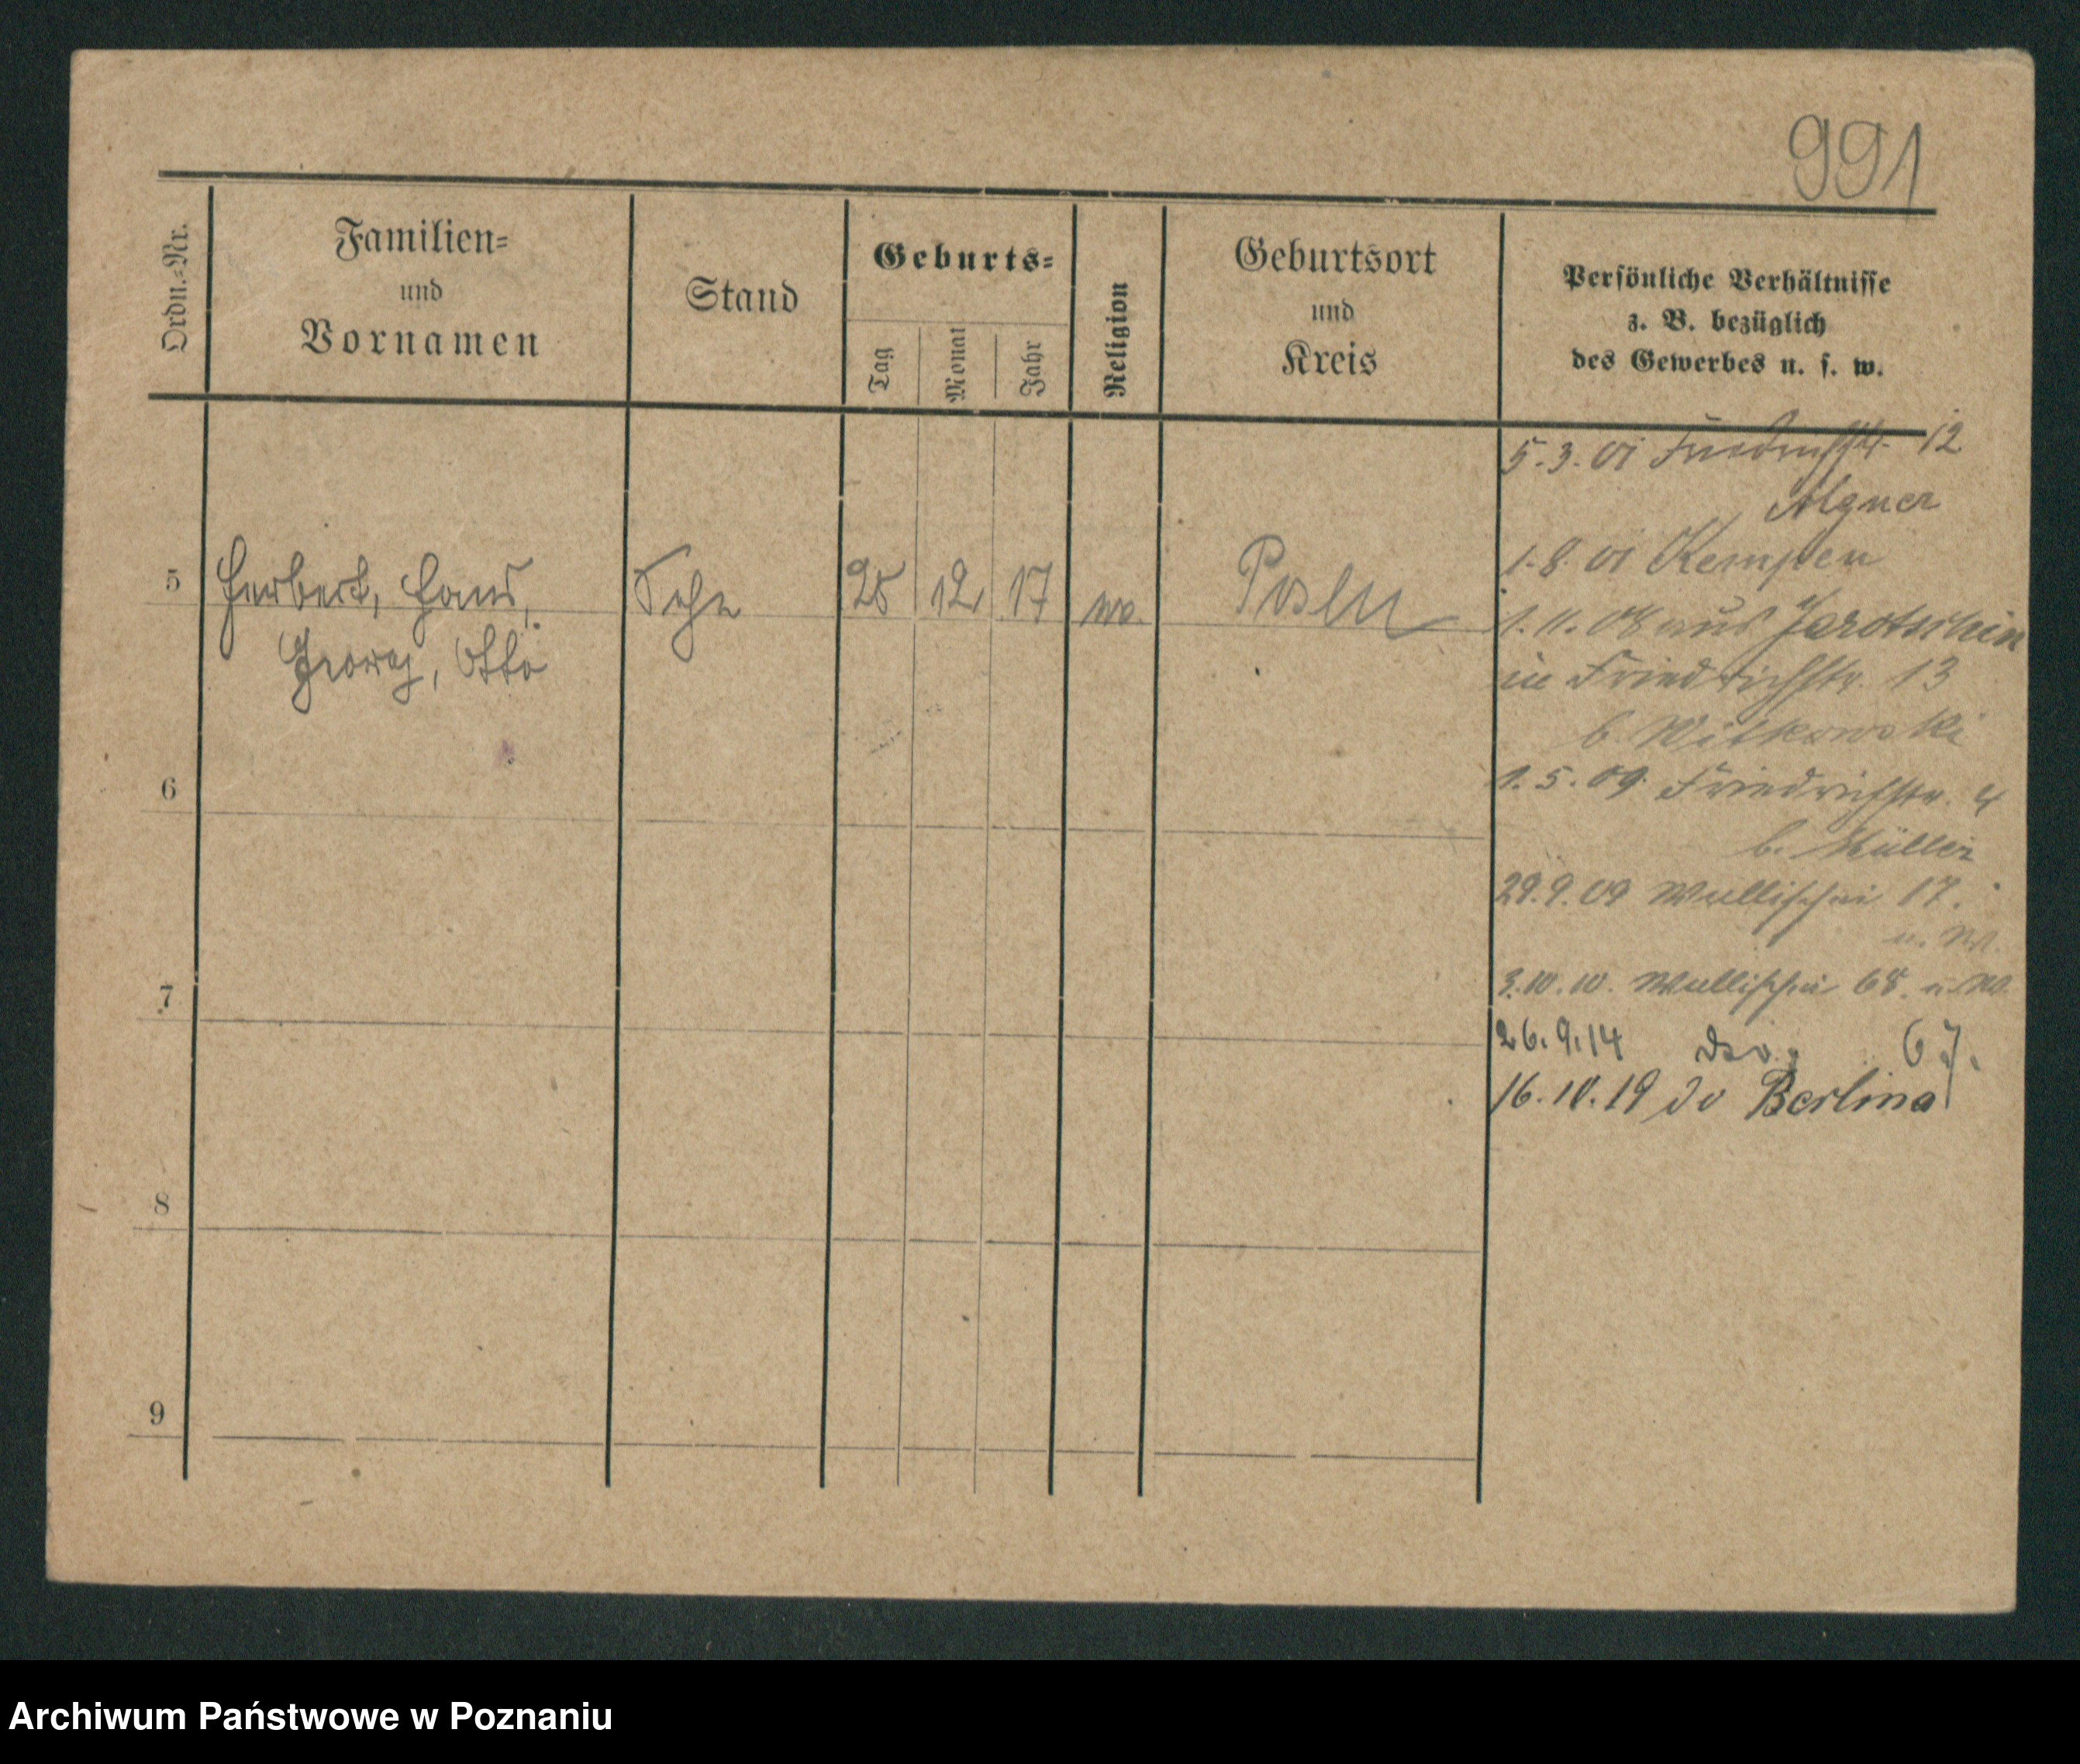 991
Ordn.-Nr.
Familien-
und
Vornamen
Stand
Geburts-
Tag
Monat
Jahr
Religion
Geburtsort
und
Kreis
Persönliche Verhältnisse
z. B. bezüglich
des Gewerbes u. s. w.
5.3.01 Friedrichstr. 12
Algner
1.8.01 Kempen
5 Herbert, Hans, Sohn 25 12 17 Posen
Georg, Otto
1.11.08 aus Jarotschin
in Friedrichstr. 13
b. Witkowski
6
1.5.09. Friedrichstr. 4
b. Müller
29.9.09 Wallischei 17.
7
3.10.10. Wallischei 68.
26.9.14 dso. 67.
16.10.19 Berlina
8
9
Archiwum Państwowe w Poznaniu